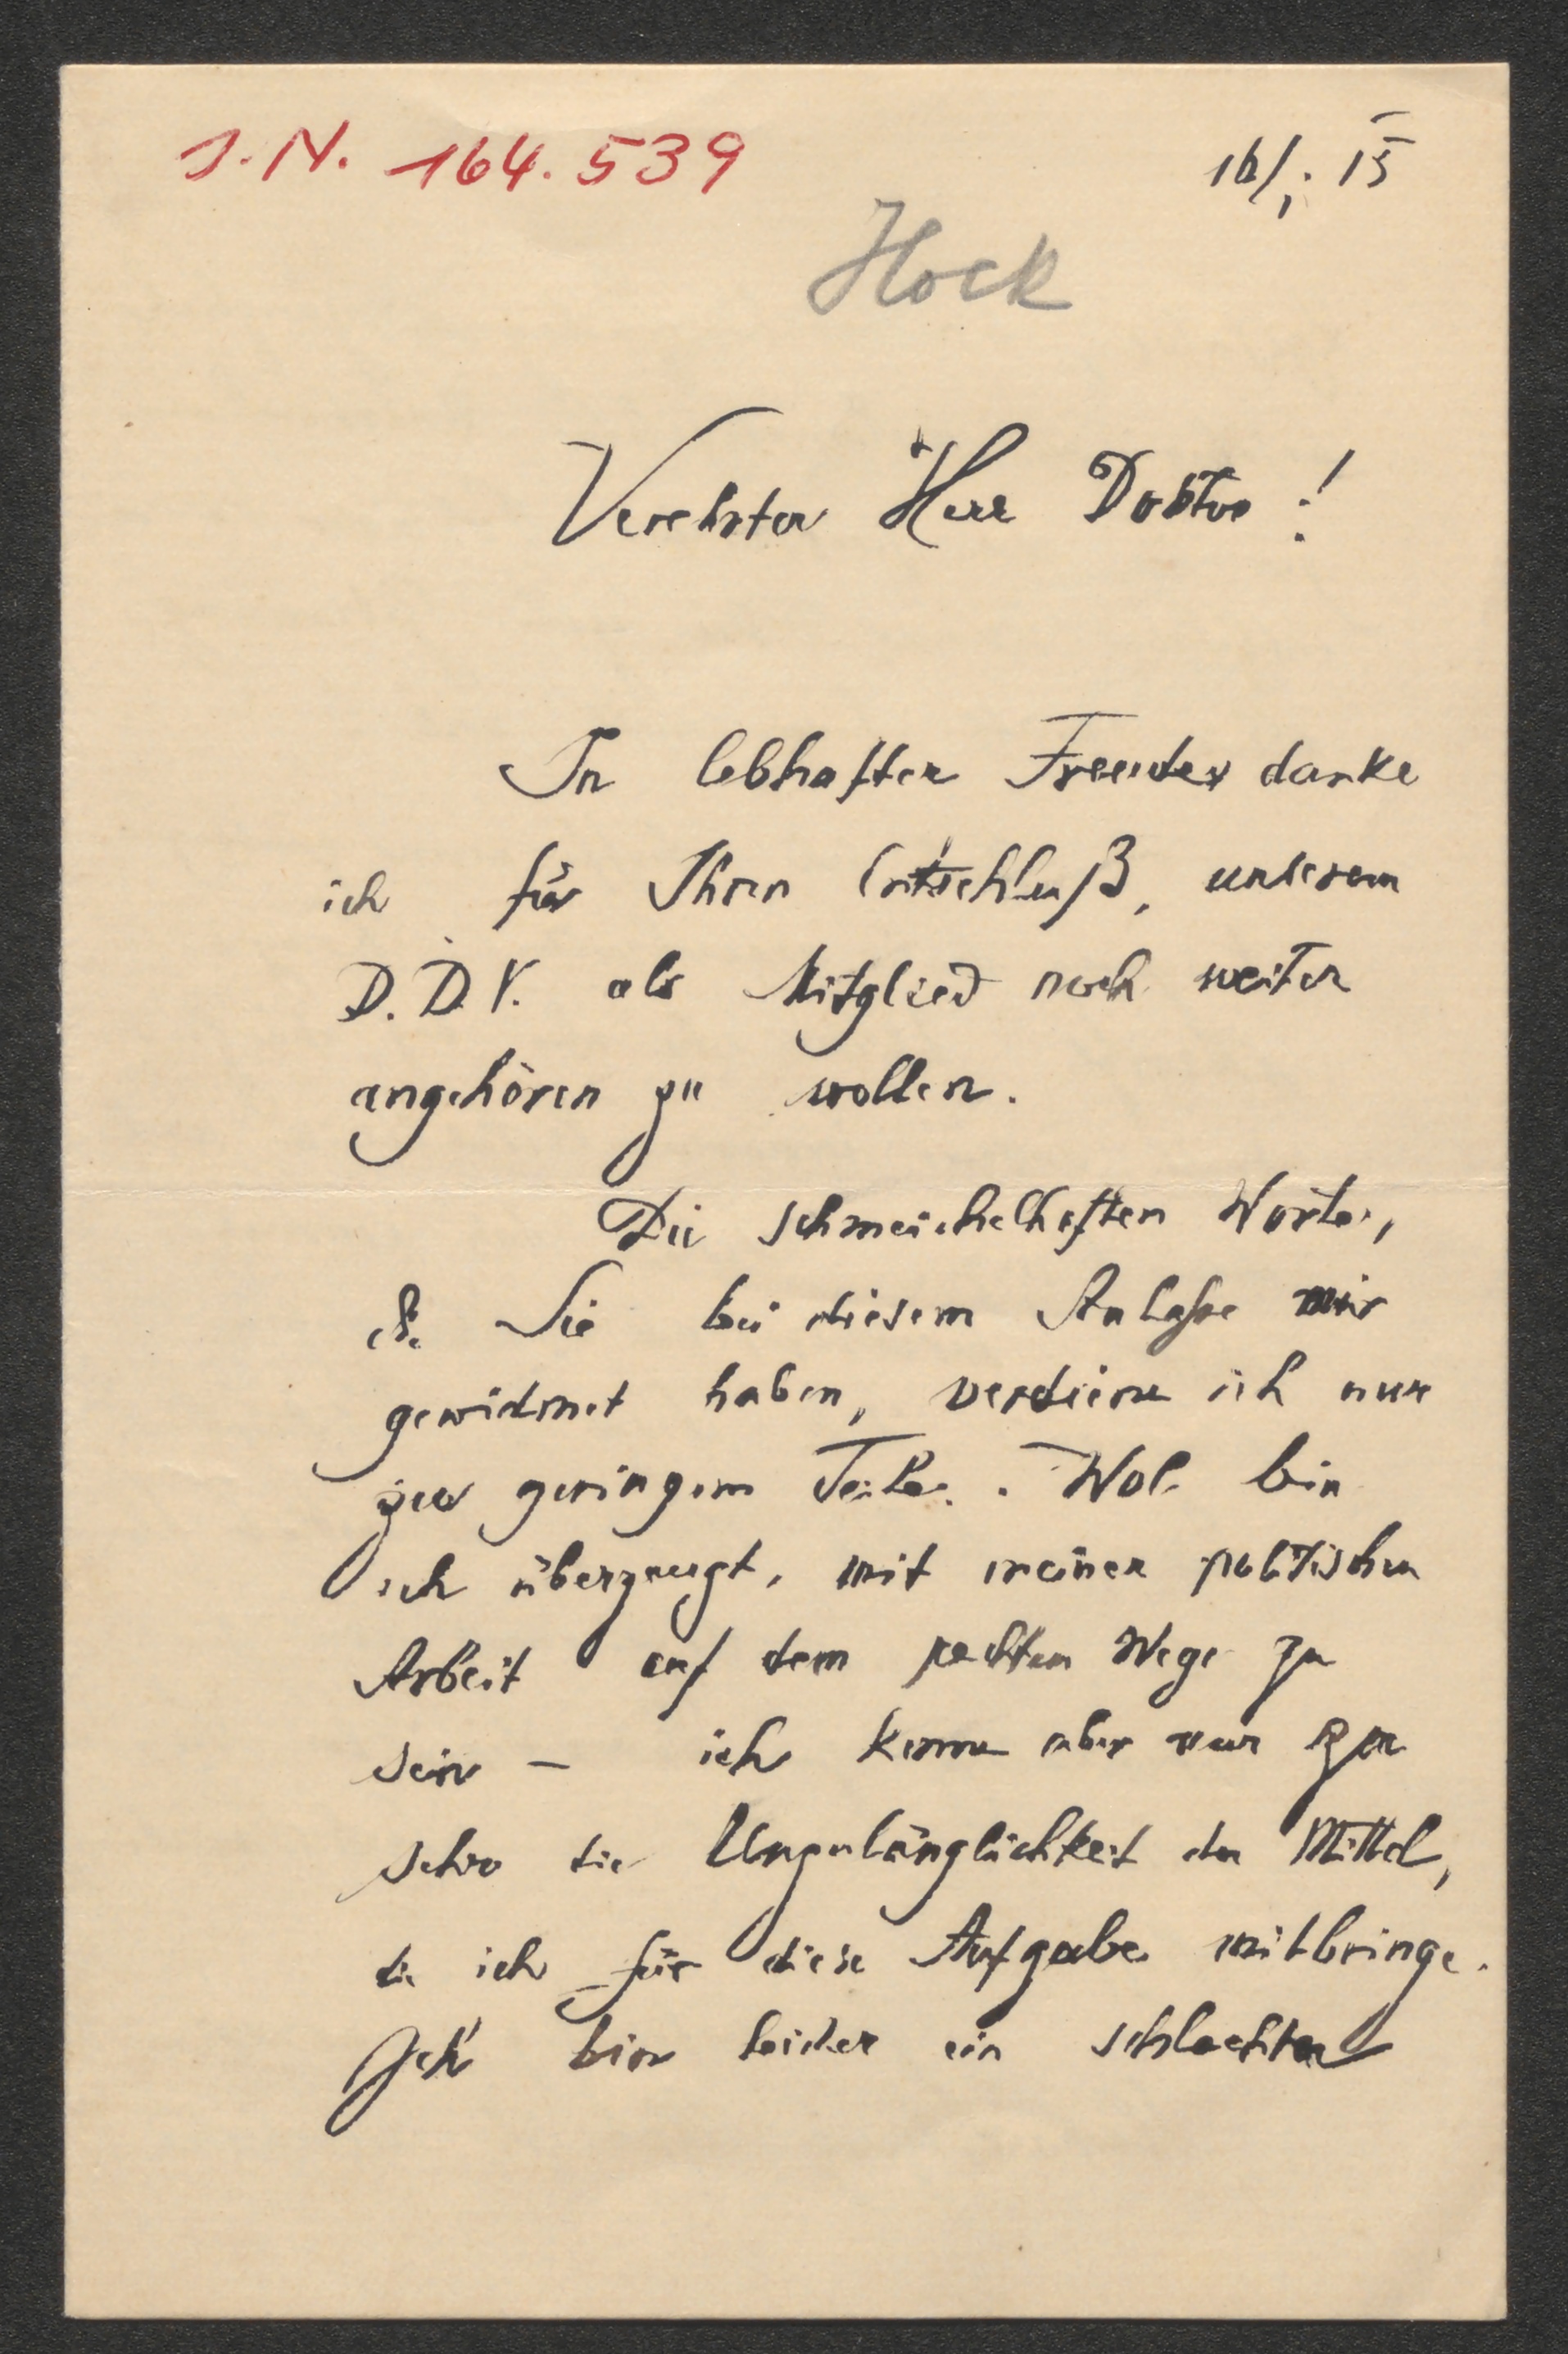 J.N. 164.539
16/1. 15
Hock
Verehrter Herr Doktor!
In lebhafter Freude danke
ich für Ihren Entschluß, unserem
D.D.V. als Mitglied noch weiter
angehören zu wollen.
Die schmeichelhaften Worte,
die Sie bei diesem Anlaße mir
gewidmet haben, verdiene ich nur
zu geringem Teile. Wol bin
ich überzeugt, mit meiner politischen
Arbeit auf dem rechten Wege zu
sein – ich kenne aber nur zu
sehr die Unzulänglichkeit der Mittel,
die ich für diese Aufgabe mitbringe.
Ich bin leider ein schlechter